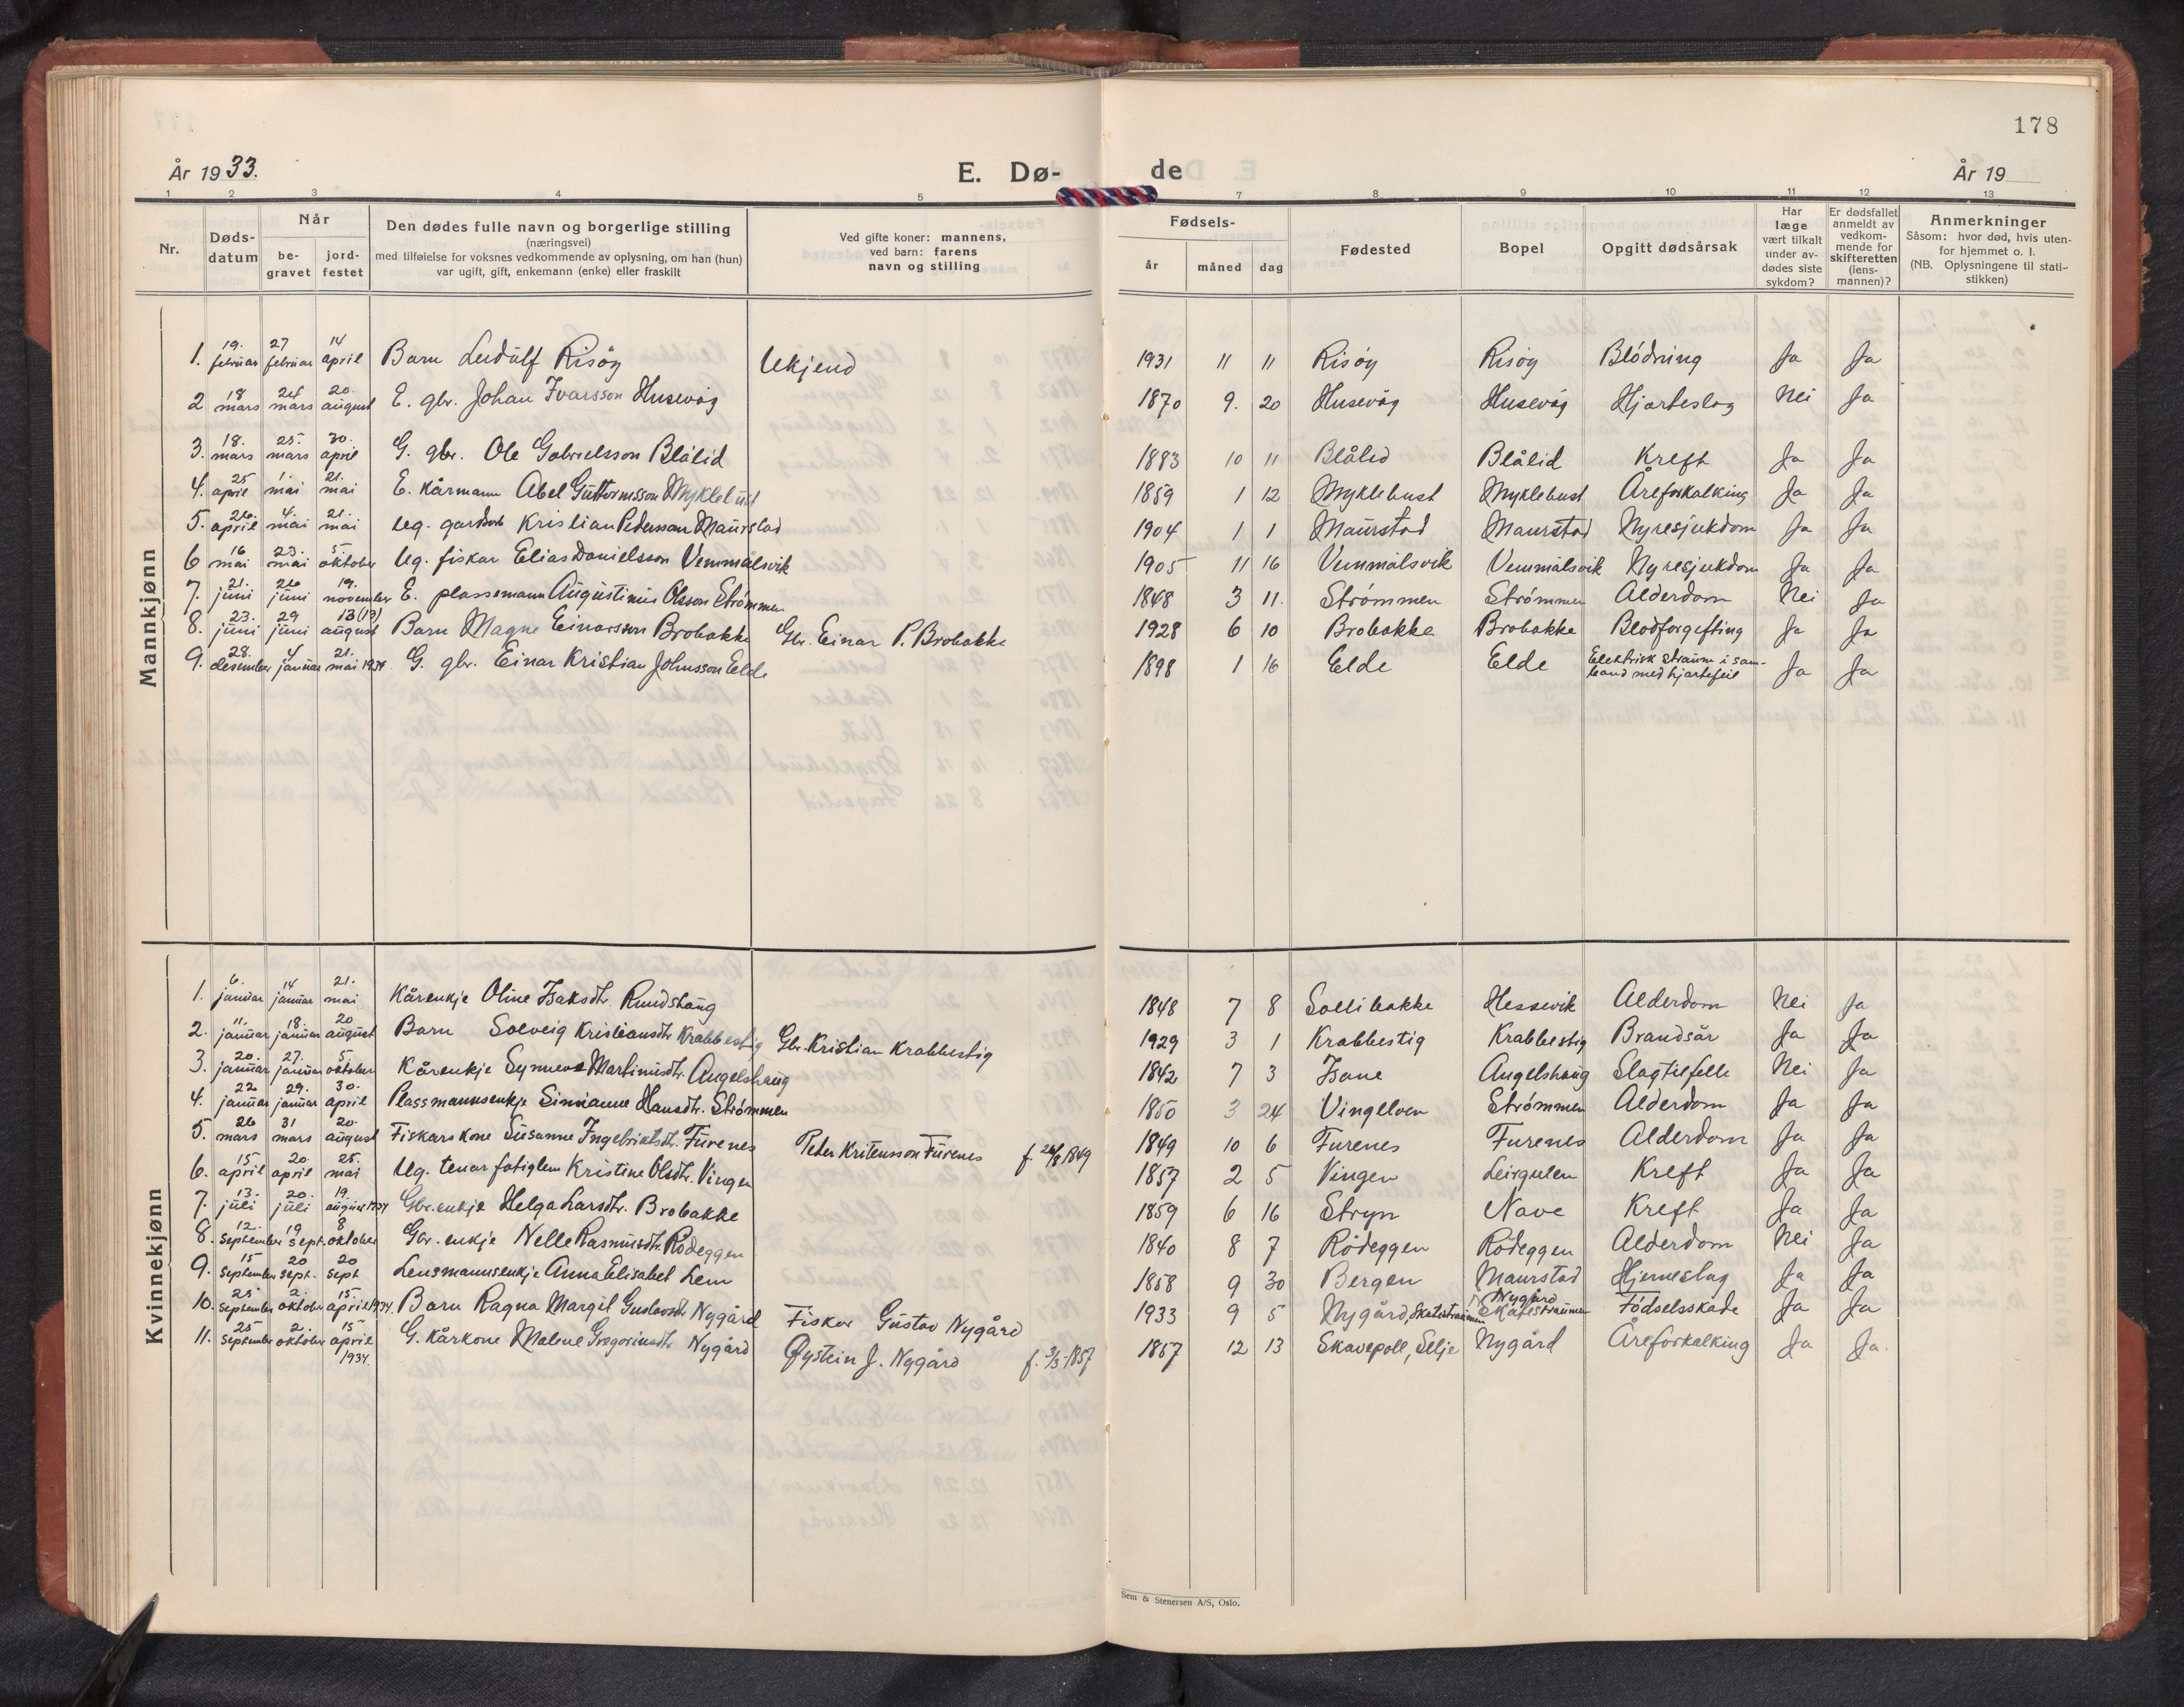 178
År 1933.
E. Dø-
de
År 19
1 2 3 4 5 7 8 9 10 11 12 13
Nr.
Døds-
datum
Når
be-
gravet
jord-
festet
Den dødes fulle navn og borgerlige stilling
(næringsvei)
med tilføielse for voksnes vedkommende av oplysning, om han (hun)
var ugift, gift, enkemann (enke) eller fraskilt
Ved gifte koner: mannens,
ved barn: farens
navn og stilling
Fødsels-
år måned dag
Fødested
Bopel
Opgitt dødsårsak
Har
læge
vært tilkalt
under av-
dødes siste
sykdom?
Er dødsfallet
anmeldt av
vedkom-
mende for
skifteretten
(lens-
mannen)?
Anmerkninger
Såsom: hvor død, hvis uten-
for hjemmet o. l.
(NB. Oplysningene til stati-
stikken)
Mannkjønn
1. 19. februar 27 februar 14 april Barn Ludülf Risöy Ukjend 1931 11 11 Risöy Risöy Blödning Ja Ja
2 18 mars 24 mars 20. august E. gbr. Johan Ivarsson Husevåg 1870 9. 20 Husevåg Husevåg Hjarteslag Nei Ja
3. 18. mars 25. mars 30. april G. gbr. Ole Gabrielsson Blålid 1883 10 11 Blålid Blålid Kreft Ja Ja
4. 25 april 1. mai 21. mai E. kårmann Abel Guttormsson Myklebust 1859 1 12 Myklebust Myklebust Åreforkalking Ja Ja
5. 26. april 4. mai 21. mai Ug. Kristian Pedersson Maurstad 1904 1 1 Maurstad Maurstad Nyresjukdom Ja Ja
6 16 mai 23. mai 5. oktober Ug. fiskar Elias Danielsson Vemmälsvik 1905 11 16 Vemmälsvik Vemmälsvik Nyresjukdom Ja Ja
7. 21. juni 26 juni 19. november E. plassemann Augustinus Olsson Strømmen 1848 3 11. Strømmen Strømmen Alderdom Nei Ja
8. 23. juni 29 juni 13 (13) august Barn Magne Einarsson Brobakke Gbr. Einar P. Brobakke 1928 6 10 Brobakke Brobakke Blodforgifting Ja Ja
9. 28. desember 4 januar 21. mai 1934. G. gbr. Einar Kristian Johnsson Elde 1898 1 16 Elde Elde Elektrisk straum i sam-
band med hjartefeil Ja Ja
Kvinnekjønn
1. 6. januar 14 januar 21. mai Kårenkje Oline Isaksdtr. Rundshaug 1848 7 8 Sollibakke Hessevik Alderdom Nei Ja
2. 11. januar 18. januar 20 august Barn Solveig Kristiansdtr Krabbestig Gbr. Kristian Krabbestig 1929 3 1 Krabbestig Krabbestig Brandsår Ja Ja
3. 20. januar 27. januar 5. oktober Kårenkje Synneve Martinusdtr. Angelshaug 1842 7 3 Isane Angelshaug Slagtilfelle Nei Ja
4. 22 januar 29. januar 30. april Plassmannsenkje Simianne Hansdtr. Strömmen 1850 3 24 Vingelven Strömmen Alderdom Ja Ja
5. 26 mars 31 mars 20. august Fiskarskone Susanne Ingebriktsdtr. Furenes Peter Kritensson Furenes f. 26/8 1849 1849 10 6 Furenes Furenes Alderdom Ja Ja
6. 15 april 20. april 25. mai Ug. tenar fatiglem Kristine Olsdtr. Vingen 1857 2 5 Vingen Leirgulen Kreft Ja Ja
7. 13. juli 20. juli 19. august 1934 Gbr.enkje Helga Larsdtr. Brobakke 1859 6 16 Stryn Nave Kreft Ja Ja
8. 12. september 19 sept. 8 oktober Gbr. enkje Nelle Rasmusdtr. Rödeggen 1840 8 7 Rödeggen Rödeggen Alderdom Nei Ja
9. 15 september 20 sept. 20 sept Lensmannsenkje Anna Elisabet Lem 1858 9 30 Bergen Maurstad Hjerneslag Ja Ja
10. 25 september 2. oktober 15. april 1934. Barn Ragna Margit Gustavsdtr Nygård Fiskar Gustav Nygård 1933 9 5 Nygård, Skatestraumen Nygård Skatestraumen Födselsskade Ja Ja
11. 25 september 2. oktober 15 april 1934. G. kårkone Malene Gregoriusdtr Nygård Øystein J. Nygård f. 3/3-1857 1857 12 13 Skavepoll, Selje Nygård Åreforkalking Ja Ja.
Sem & Stenersen A/S, Oslo.